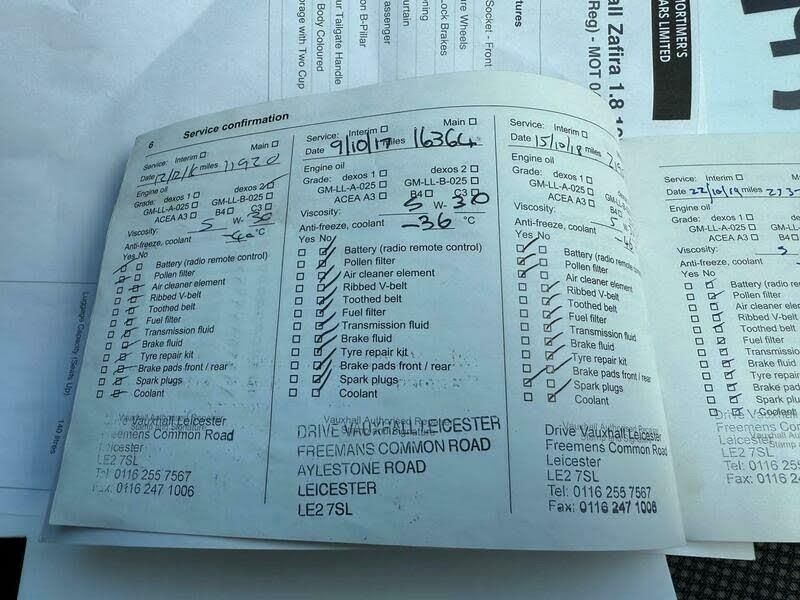 ortage with Two Cup
Body Coloured
ur Tailgate Handle
on B-Pillar
urtain
assenger
oning
Lock Brakes
re Wheels
Socket - Front
tures
all Zafira 1.8
Reg) - MOT 0
MORTIMER'S
ARS LIMITED
Luggage Capacity (Seats Up)
140 litres
6 Service confirmation
Service: Interim Main
Date 12/12/16 miles 11920
Engine oil
Grade: dexos 1 dexos 2
GM-LL-A-025 GM-LL-B-025
ACEA A3 B4 C3
Viscosity: 5 W- 30
Anti-freeze, coolant °C
Yes No
Battery (radio remote control)
Pollen filter
Air cleaner element
Ribbed V-belt
Toothed belt
Fuel filter
Transmission fluid
Brake fluid
Tyre repair kit
Brake pads front / rear
Spark plugs
Coolant
Drive Vauxhall Leicester
Freemens Common Road
Leicester
LE2 7SL
Tel: 0116 255 7567
Fax: 0116 247 1006
Service: Interim Main
Date 9/10/17 miles 16364
Engine oil
Grade: dexos 1 dexos 2
GM-LL-A-025 GM-LL-B-025
ACEA A3 B4 C3
Viscosity: 5 W- 30
Anti-freeze, coolant -36 °C
Yes No
Battery (radio remote control)
Pollen filter
Air cleaner element
Ribbed V-belt
Toothed belt
Fuel filter
Transmission fluid
Brake fluid
Tyre repair kit
Brake pads front / rear
Spark plugs
Coolant
Vauxhall Authorised Repairer
DRIVE VAUXHALL LEICESTER
FREEMANS COMMON ROAD
AYLESTONE ROAD
LEICESTER
LE2 7SL
Service: Interim
Date 15/10/18 miles
Engine oil
Grade: dexos 1
GM-LL-A-025
ACEA A3
Viscosity: 5
Anti-freeze, coolant
Yes No
Battery (radio remote
Pollen filter
Air cleaner element
Ribbed V-belt
Toothed belt
Fuel filter
Transmission fluid
Brake fluid
Tyre repair kit
Brake pads front / rear
Spark plugs
Coolant
Drive Vauxhall Leicester
Freemens Common Road
Leicester
LE2 7SL
Tel: 0116 255 7567
Fax: 0116 247 1006
Service: Interim
Date 22/10/19 miles
Engine oil
Grade: dexos 1
GM-LL-A-025
ACEA A3 B4
Viscosity: 5
Anti-freeze, coolant
Yes No
Battery (radio
Pollen filter
Air cleaner element
Ribbed V-belt
Toothed belt
Fuel filter
Transmission
Brake fluid
Tyre repair
Brake pads
Spark plu
Coolant
Drive Vauxhall
Freemens Comm
Leicester
LE2 7SL
Tel: 0116 25
Fax: 0116 24